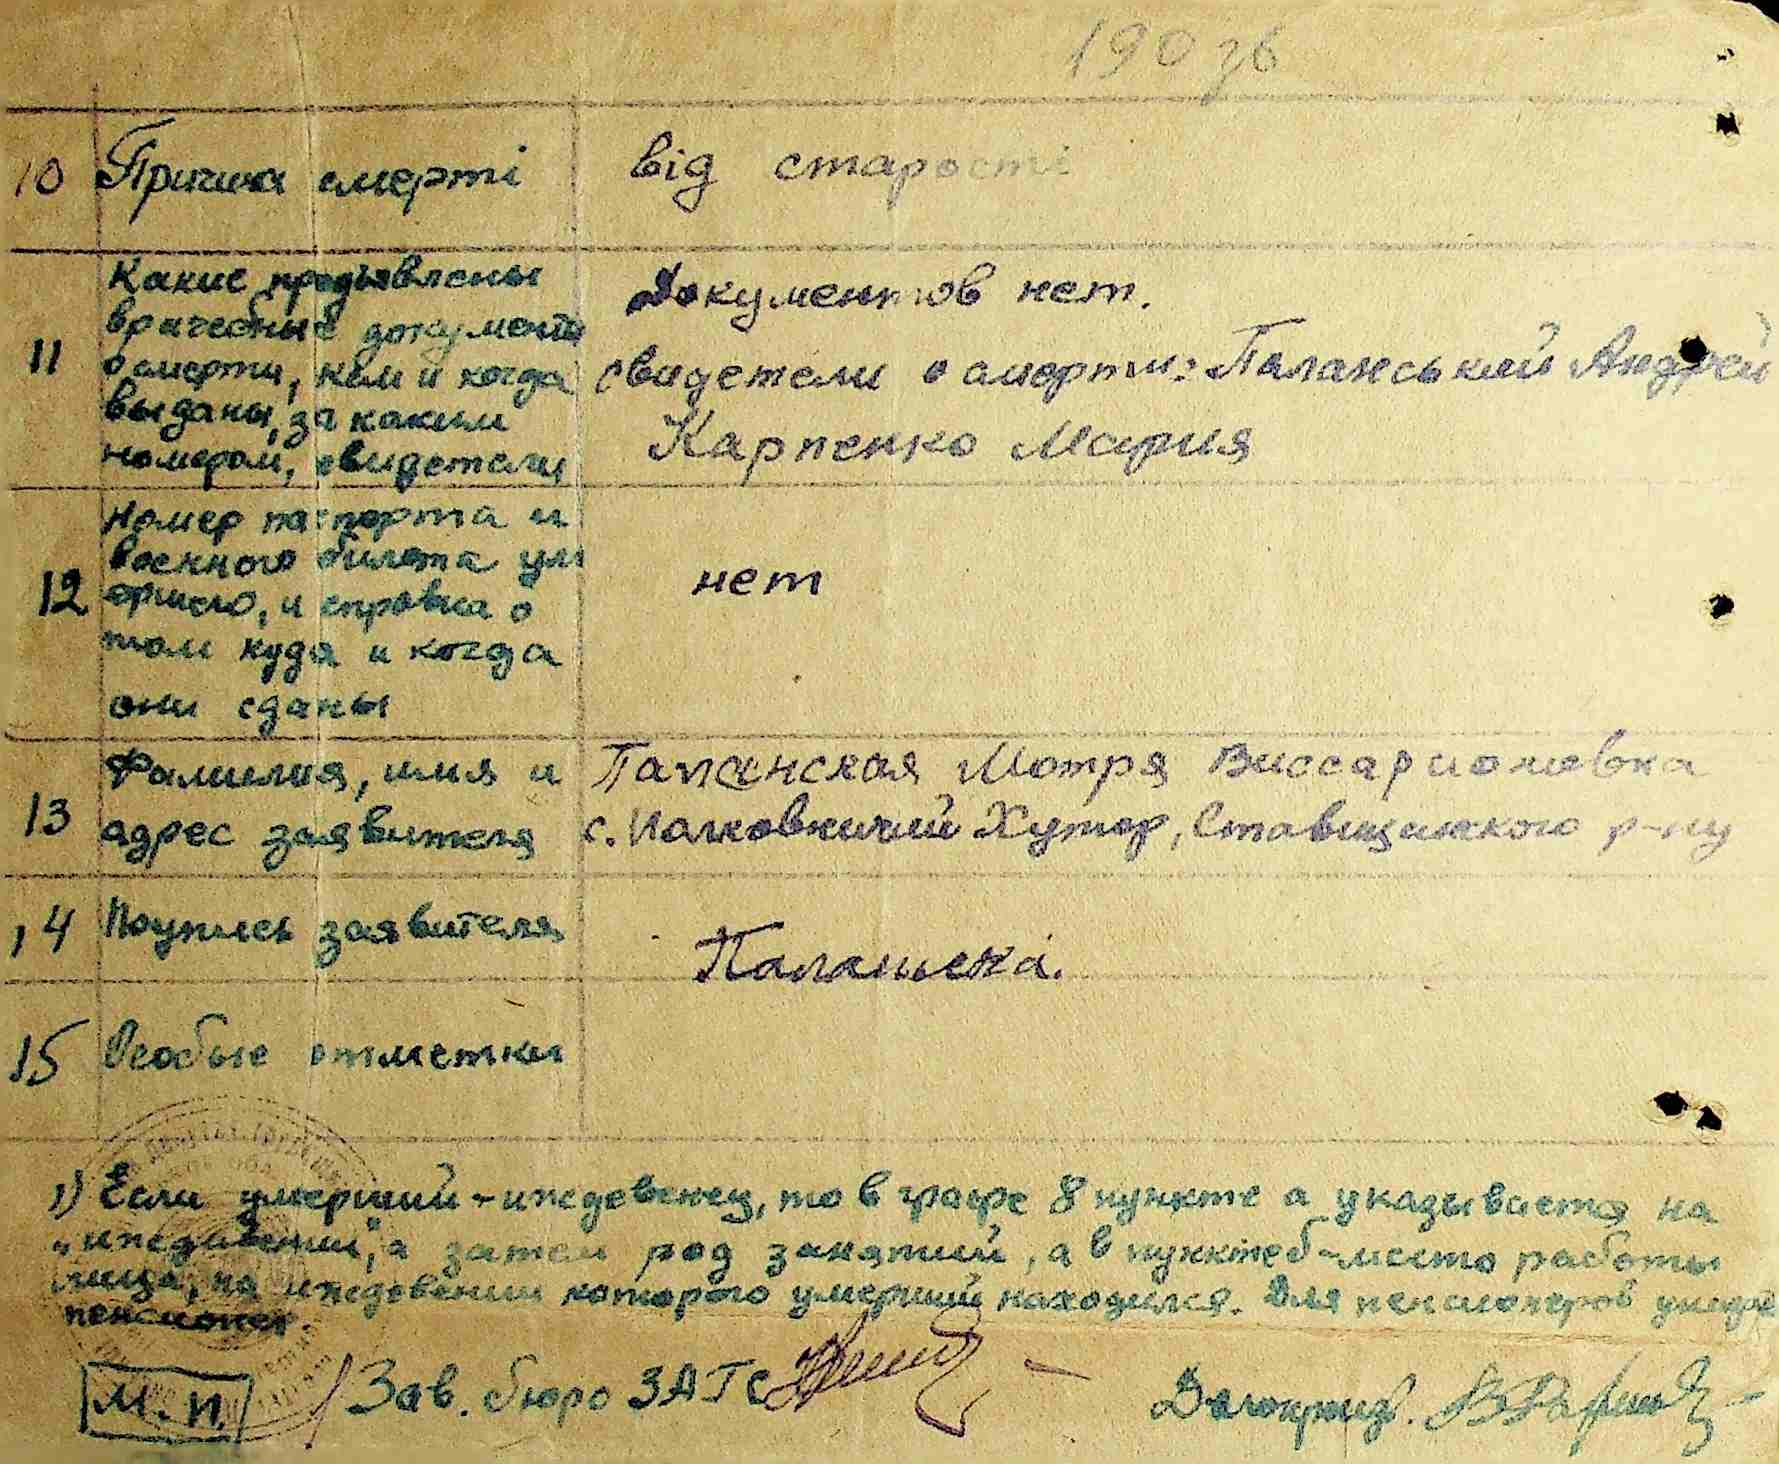 190 зв
10 Причина смерті від старості
11 Какие предъявлены
врачебные документы
о смерти, кем и когда
выданы, за каким
номером, свидетели
Документов нет.
свидетели о смерти: Паланський Андрей
Карпенко Мария
12 Номер паспорта и
военного билета ум
ершего, и справка о
том куда и когда
они сданы
нет
13 Фамилия, имя и
адрес заявителя
Паланская Мотря Виссарионовна
с. Полковничий Хутор, Ставищанского р-ну
14 Подпись заявителя
Паланьска.
15 Особые отметки
1) Если умерший - иждевенец, то в графе 8 пункте а указывается на
"иждивении", а затем род занятий, а в пункте б - место работы
лица, на иждевении которого умерший находился. Для пенсионеров
пенсионер.
М. П. Зав. бюро ЗАГС Делопроизв.